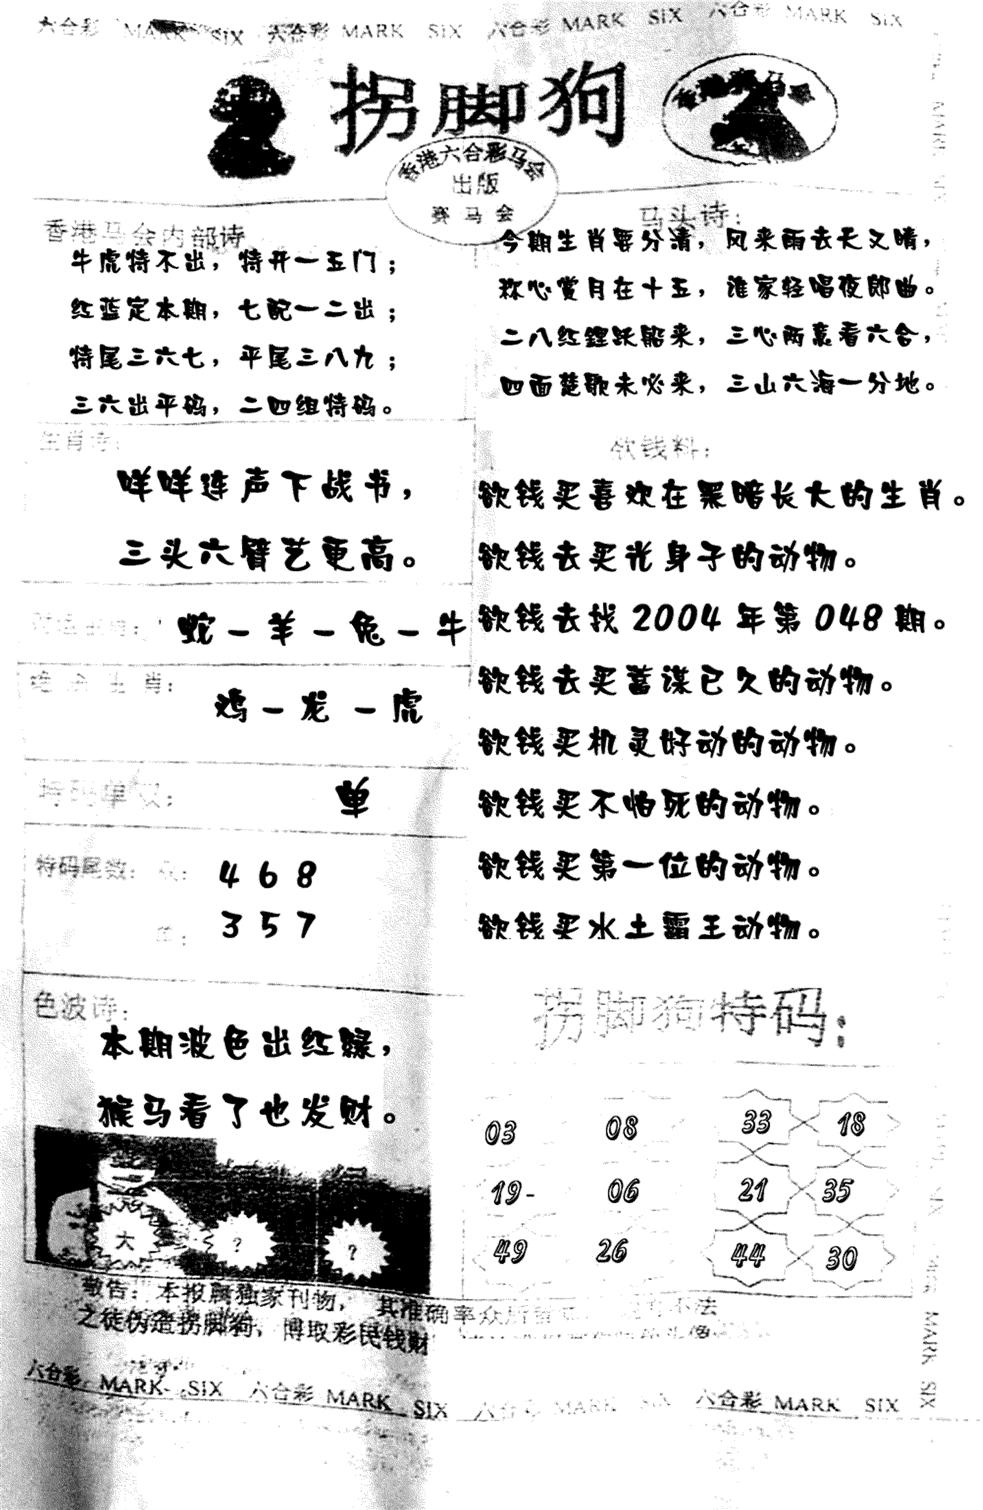 六合彩 MARK SIX 六合彩 MARK SIX 六合彩 MARK SIX 六合彩 MARK SIX
拐脚狗
香港赛马会
香港六合彩马会
出版
赛马会
香港马会内部诗
牛虎特不出，特开一五门；
红蓝定本期，七配一二出；
特尾三六七，平尾三八九；
三六出平码，二四组特码。
马头诗：
今期生肖要分清，风来雨去天又晴，
称心赏月在十五，谁家轻唱夜郎曲。
二八红鲤跃船来，三心两意看六合，
四面楚歌未必来，三山六海一分地。
生肖诗：
咩咩连声下战书，
三头六臂艺更高。
蛇－羊－兔－牛
绝杀生肖：
鸡－龙－虎
特码单双：
单
特码尾数：双：468
单：357
色波诗：
本期波色出红绿，
猴马看了也发财。
欲钱料：
欲钱买喜欢在黑暗长大的生肖。
欲钱去买光身子的动物。
欲钱去找2004年第048期。
欲钱去买蓄谋已久的动物。
欲钱买机灵好动的动物。
欲钱买不怕死的动物。
欲钱买第一位的动物。
欲钱买水土霸王动物。
拐脚狗特码：
03 08 33 18
19- 06 21 35
49 26 44 30
大 ? ?
敬告：本报属独家刊物，其准确率众所皆 不法
之徒伪造拐脚狗，博取彩民钱财
六合彩 MARK SIX 六合彩 MARK SIX 六合彩 MARK SIX 六合彩 MARK SIX
MARK SIX